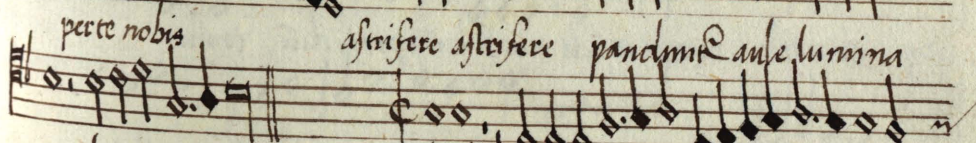 perte nobis astrifere astrifere pandunt᷑ aule lumina